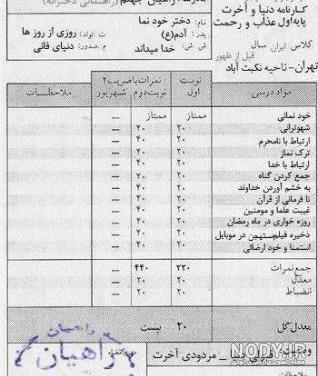 کارنامه دنیا و آخرت
پایه‌اول عذاب و رحمت
کلاس ایران سال
قبل از ظهور
تهران- ناحیه نکبت آباد
نام: دختر خود نما
پدر: آدم(ع)
ش.ش: خدا میداند
ت. تولد: روزی از روز ها
م.صدور: دنیای فانی
مواد درسی نوبت اول نمرات‌با‌ضریب۲ نوبت‌دوم شهریور ملاحظات
خود نمائی ممتاز ممتاز —
شهوترانی ۲۰ ۴۰ —
ارتباط با نامحرم ۲۰ ۴۰ —
ترک نماز ۲۰ ۴۰ —
ارتباط با خدا ۲۰ ۴۰ —
جمع کردن گناه ۲۰ ۴۰ —
به خشم آوردن خداوند ۲۰ ۴۰ —
نا فرمانی از قرآن ۲۰ ۴۰ —
غیبت علما و مومنین ۲۰ ۴۰ —
روزه خواری در ماه رمضان ۲۰ ۴۰ —
ذخیره فیلم در موبایل ۲۰ ۴۰ —
استمنا و خود ارضائی ۲۰ ۴۰ —
جمع نمرات ۲۲۰ ۴۴۰ —
معدل ۲۰ ۲۰ —
انضباط ۲۰ ۲۰ —
معدل کل ۲۰ بیست
مردودی آخرت
راهیان
راهیان
ملاحظات
NODY.IR